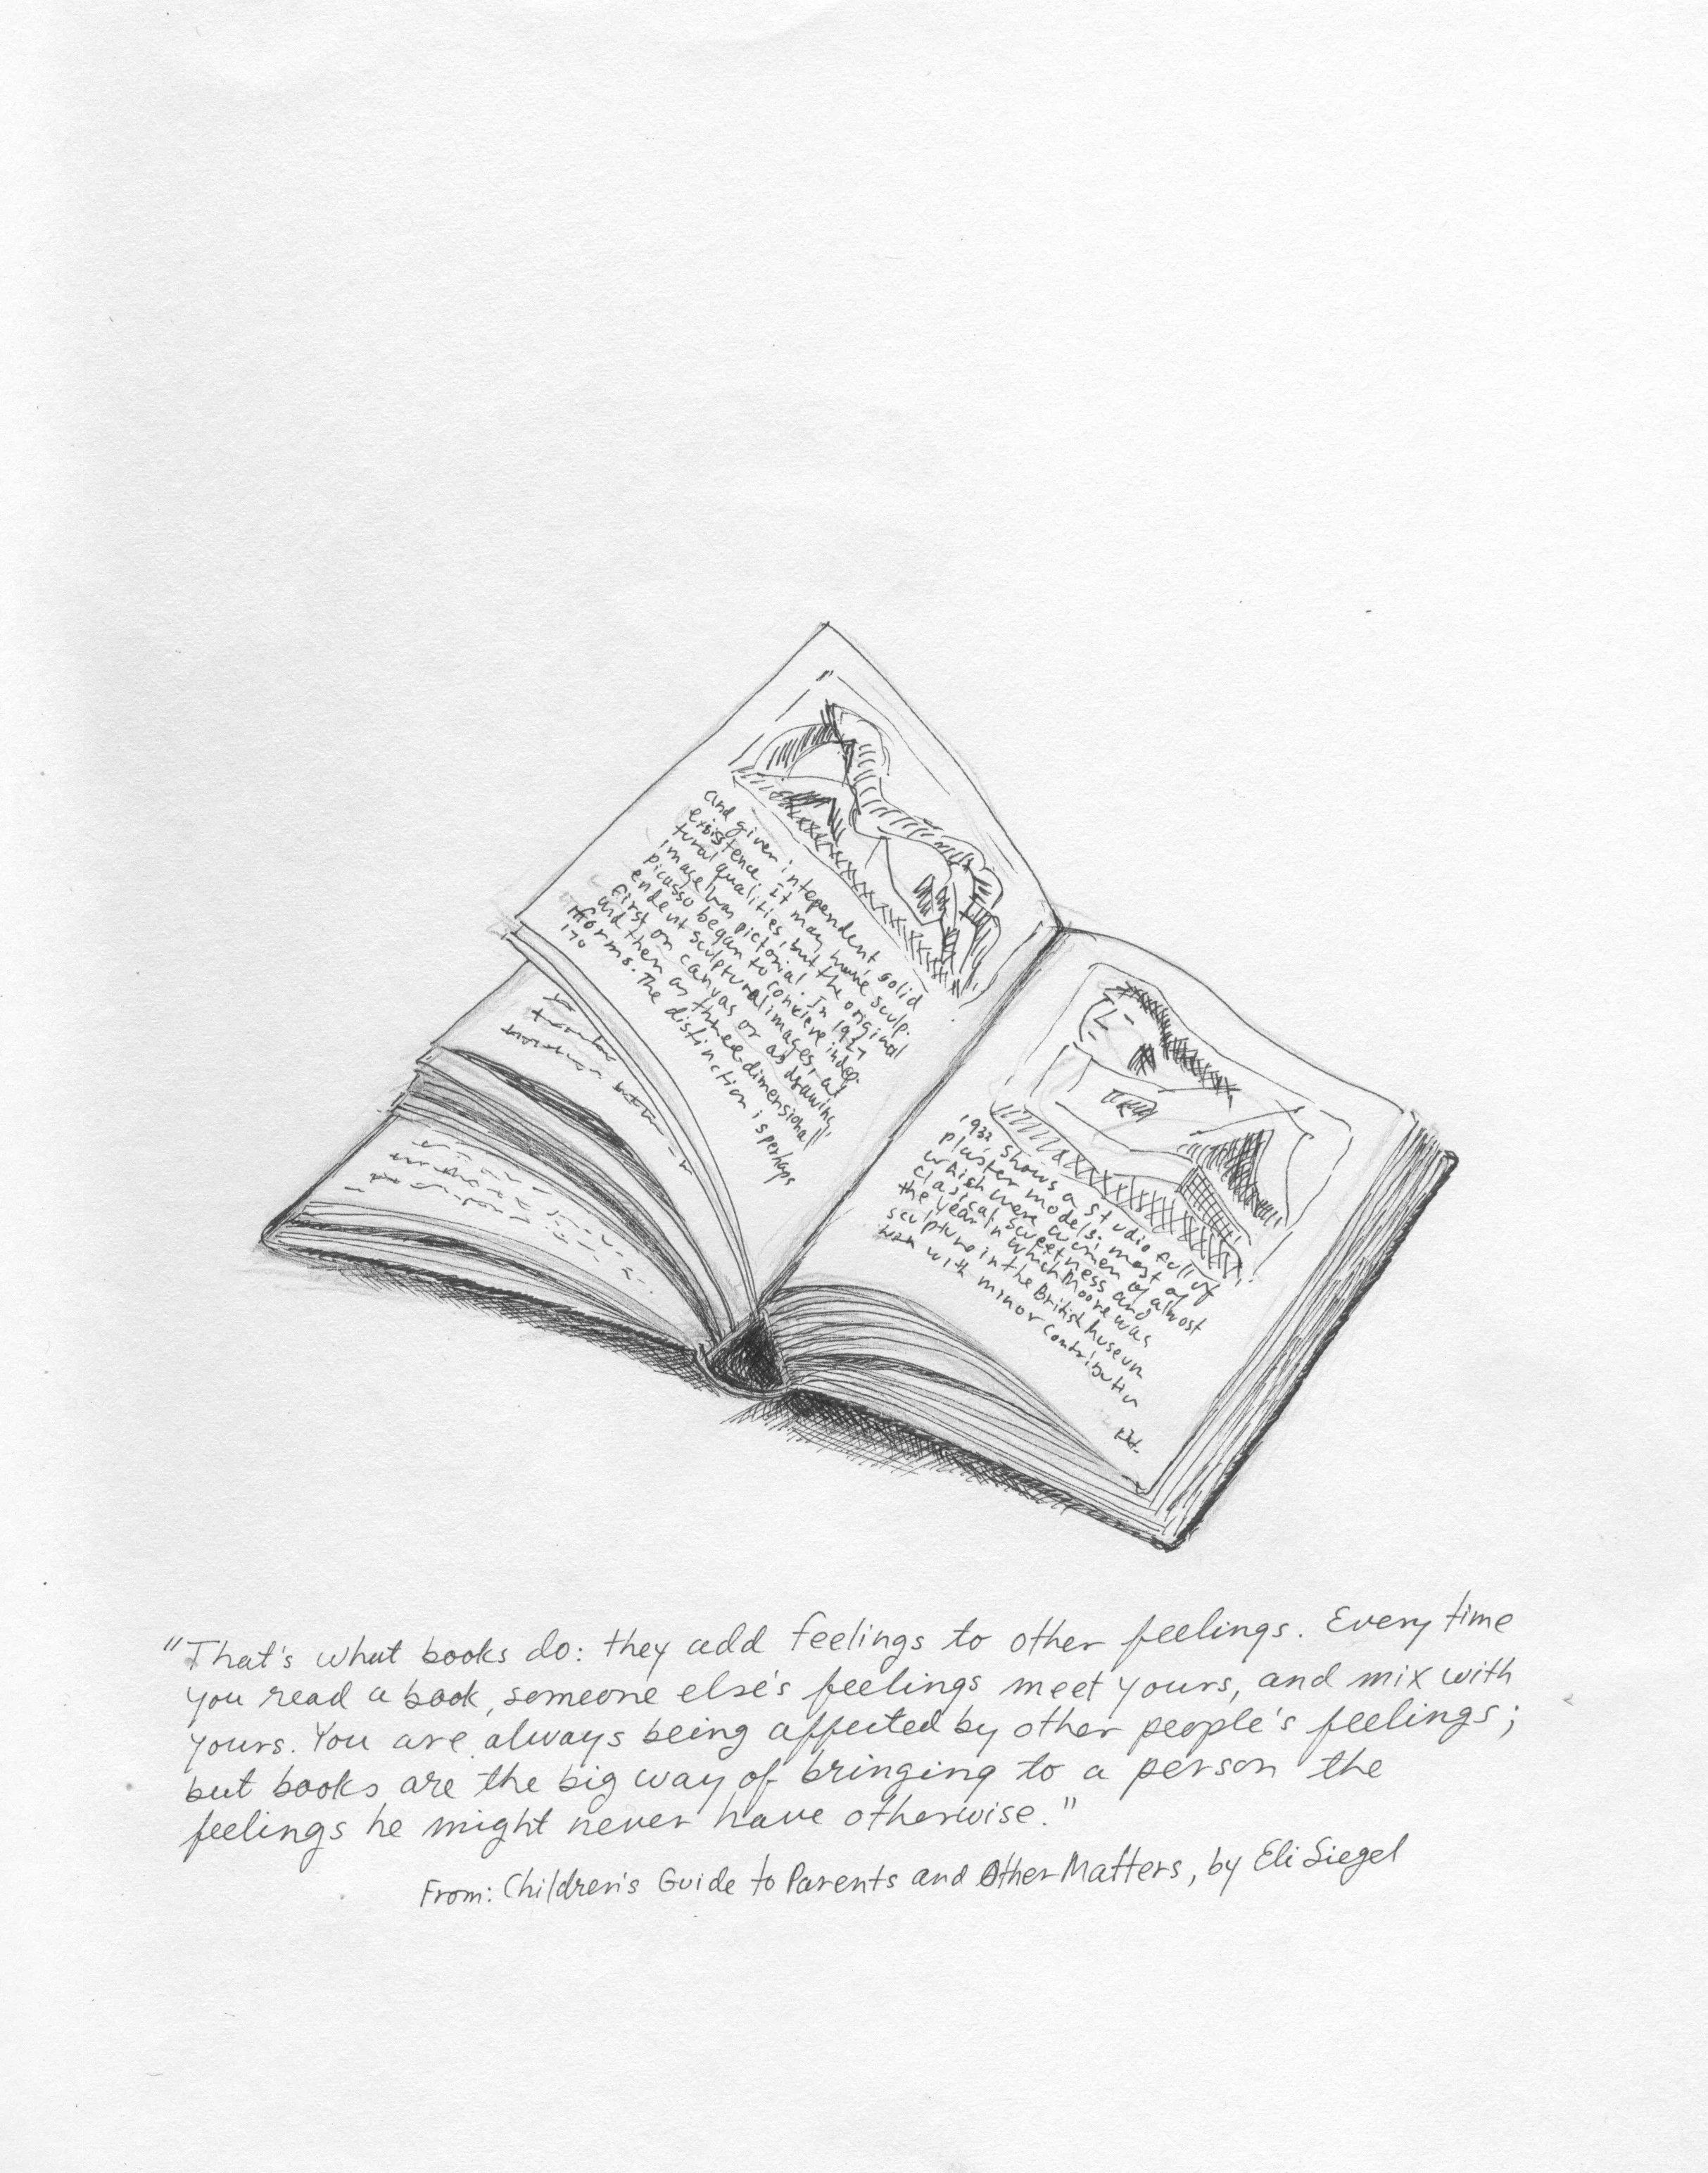 and given intependent solid
existence. It may have sculp-
tural qualities, but the original
image was pictorial. In 1927
picasso began to concieve indep-
endent sculptural images, al
first on canvas or as drawing,
and then as three-dimensional
forms. The distinction is perhaps
170
1932 shows a studio full of
plaster models; most of
which were women of almost
clasical sweetness and
the year in which Moore was
sculpture in the British Museum
was with minor contributin
"That's what books do: they add feelings to other feelings. Every time
you read a book, someone else's feelings meet yours, and mix with
yours. You are always being affected by other people's feelings;
but books are the big way of bringing to a person the
feelings he might never have otherwise."
From: Children's Guide to Parents and Other Matters, by Eli Siegel